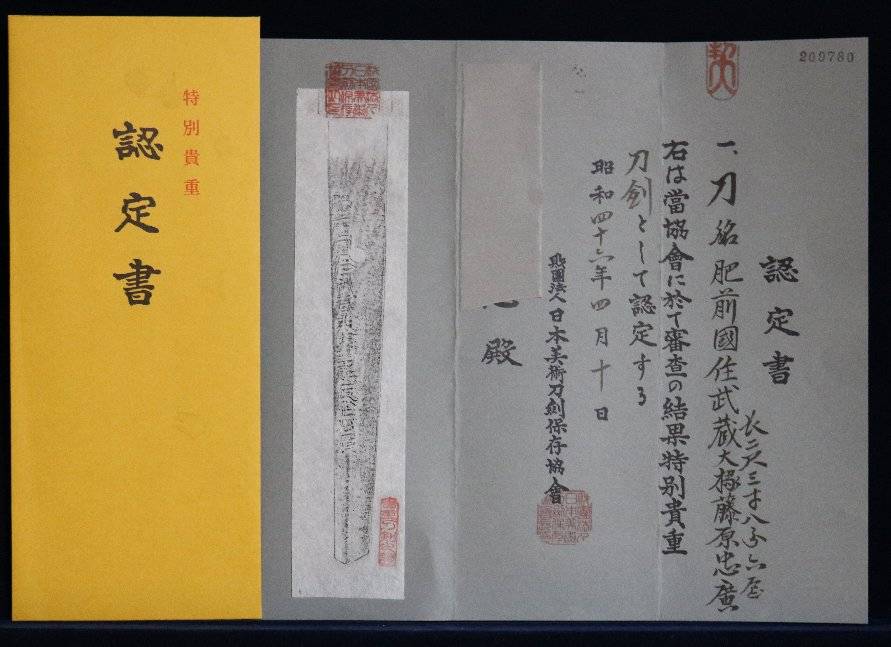 特別貴重
認定書
209780
認定書
一、刀 銘 肥前國住武蔵大掾藤原忠廣
長二尺三寸八分六厘
右は當協會に於て審査の結果特別貴重
刀剣として認定する
昭和四十六年四月十日
財團法人日本美術刀剣保存協會
殿